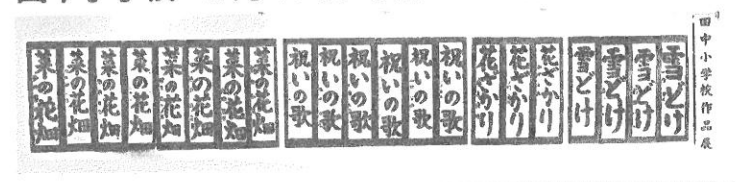 田中小学校作品展
雪どけ
雪どけ
雪どけ
雪どけ
花ざかり
花ざかり
花ざかり
祝いの歌
祝いの歌
祝いの歌
祝いの歌
祝いの歌
祝いの歌
菜の花畑
菜の花畑
菜の花畑
菜の花畑
菜の花畑
菜の花畑
菜の花畑
菜の花畑